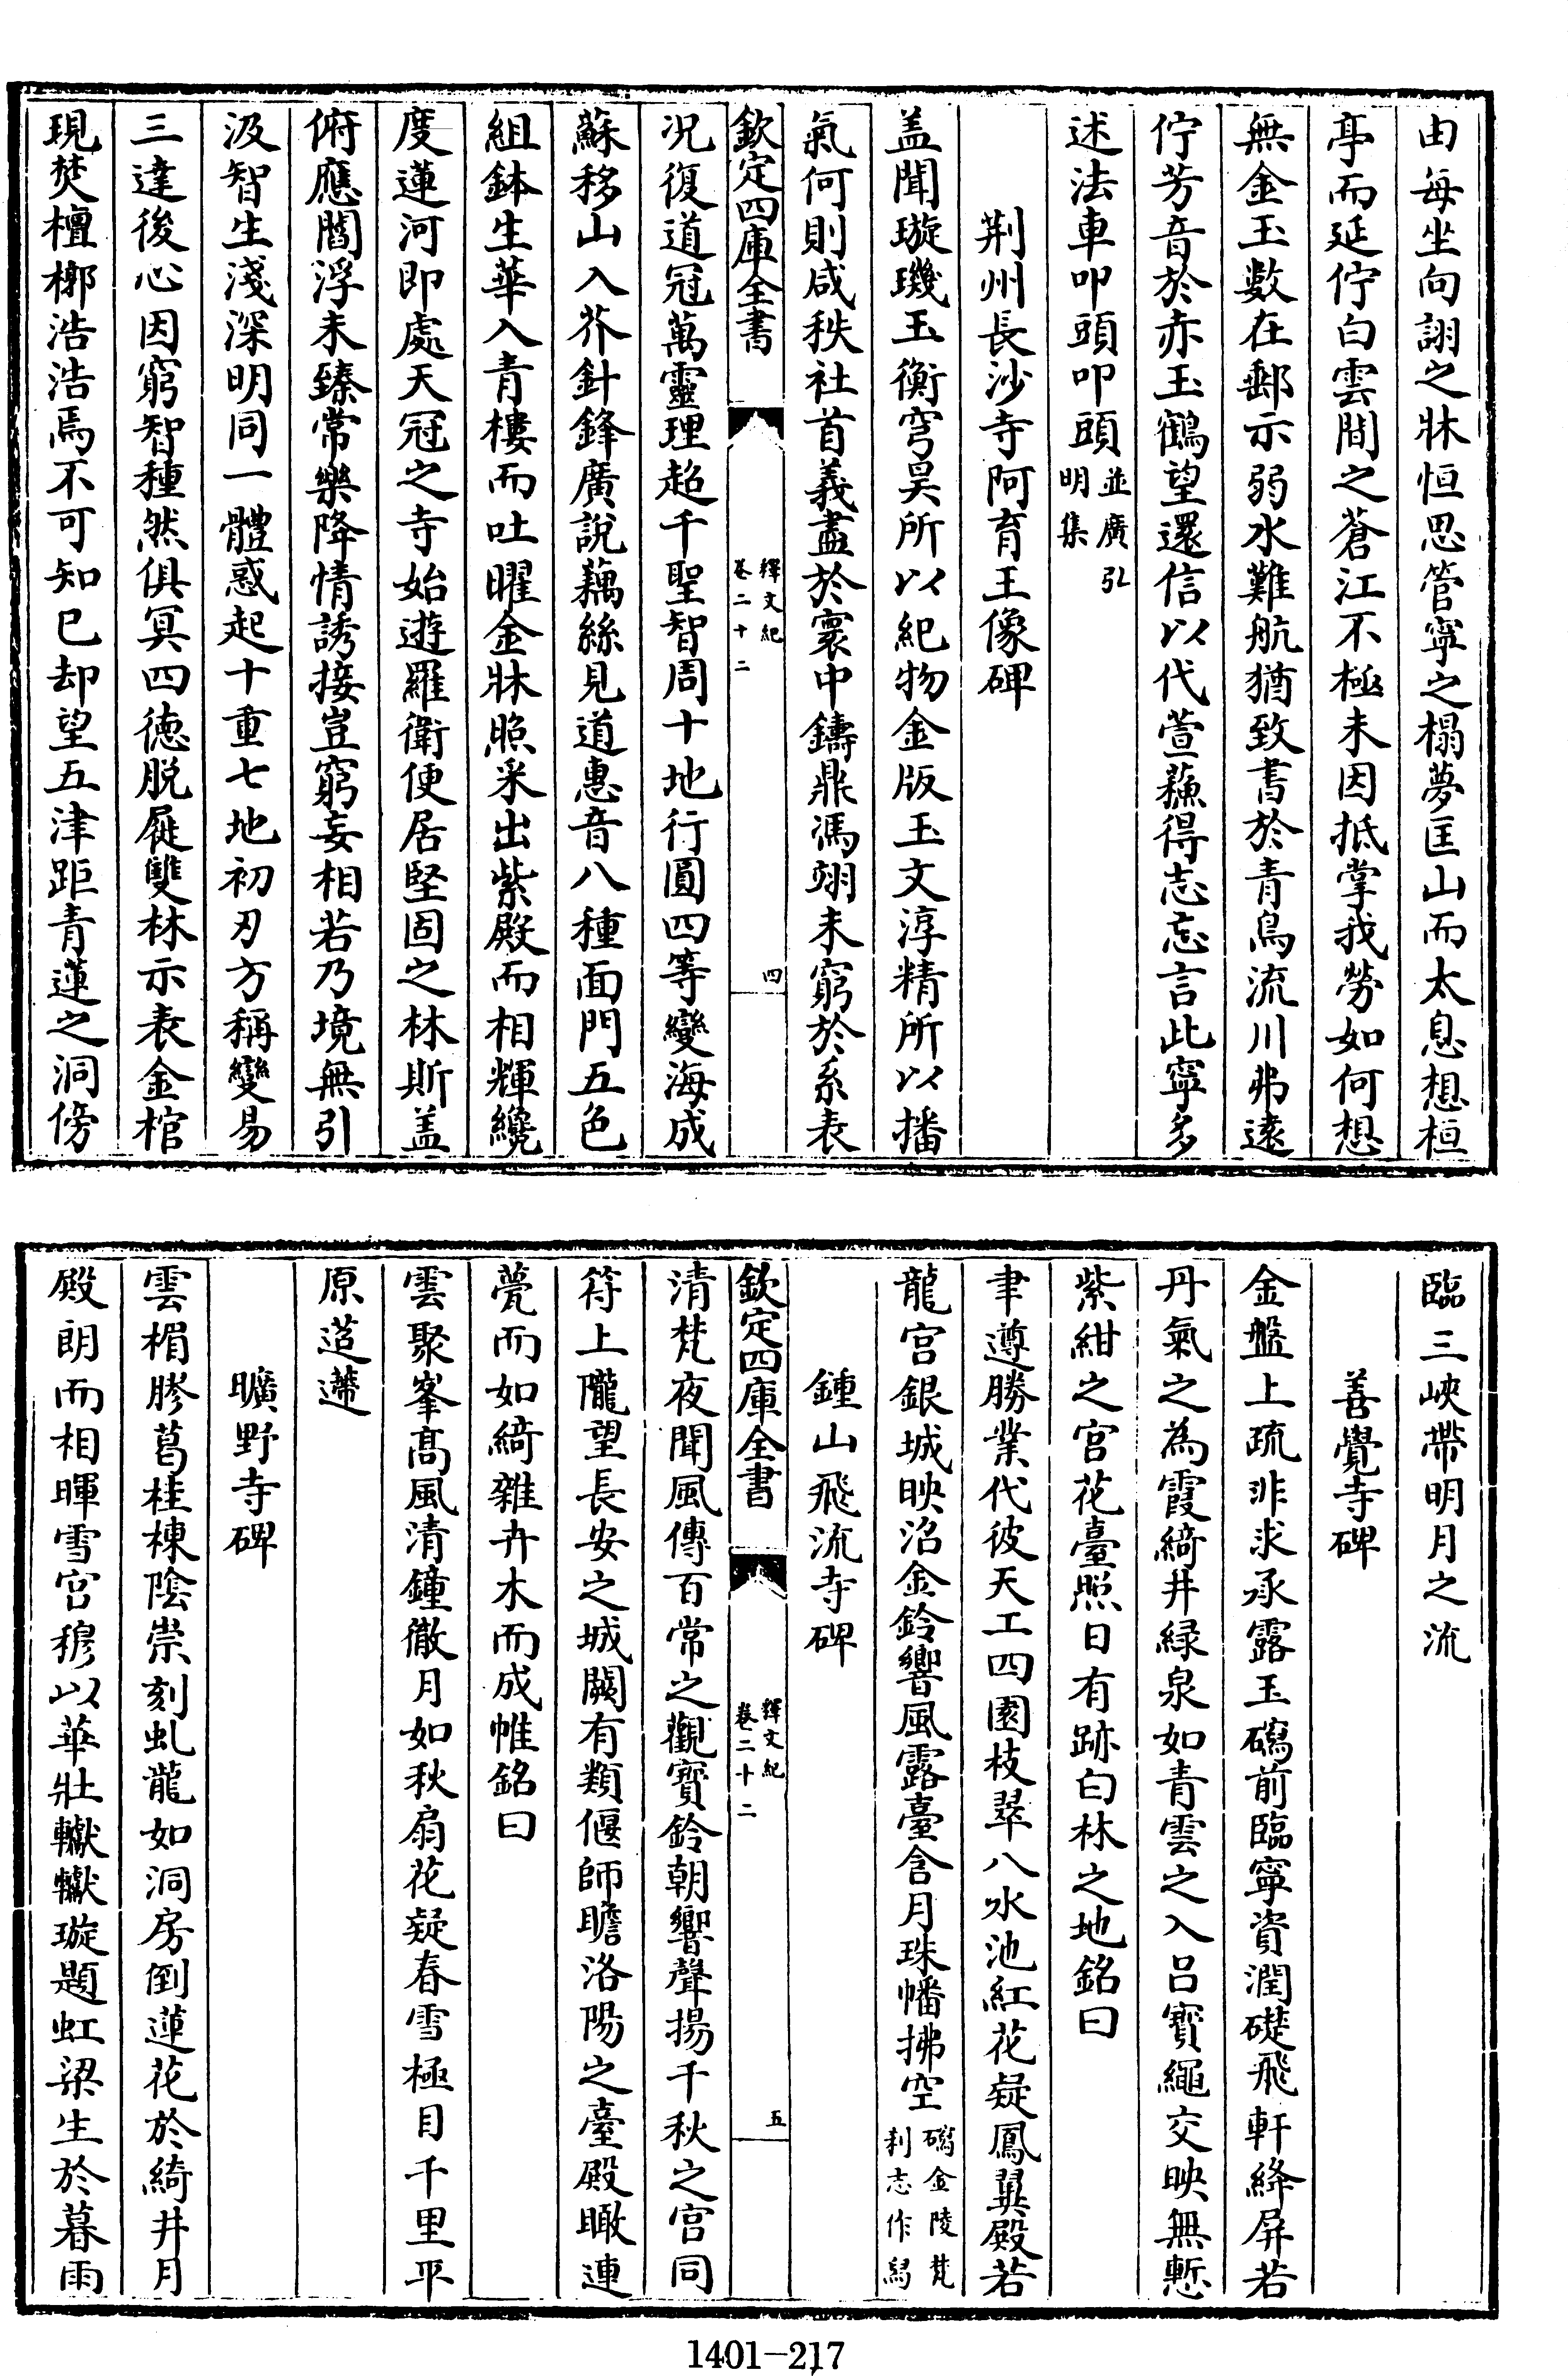 由每坐向詡之牀恒思管寧之榻夢匡山而太息想桓
亭而延佇白雲間之蒼江不極未因抵掌我勞如何想
無金玉數在郵示弱水難航猶致書於青鳥流川弗遠
佇芳音於赤玉鶴望還信以代萱蘓得志忘言此寧多
述法車叩頭叩頭並廣弘明集
荆州長沙寺阿育王像碑
盖聞璇璣玉衡穹昊所以紀物金版玉文淳精所以播
氣何則咸秩社首義盡於寰中鑄鼎馮翊未窮於系表
欽定四庫全書 釋文紀 卷二十二 四
况復道冠萬靈理超千聖智周十地行圓四等變海成
蘇移山入芥針鋒廣說藕絲見道惠音八種面門五色
組鉢生華入青樓而吐曜金牀照釆出紫殿而相輝纔
度蓮河即處天冠之寺始遊羅衛便居堅固之林斯盖
俯應閻浮未臻常樂降情誘接豈窮妄相若乃境無引
汲智生淺深明同一體惑起十重七地初刃方稱變易
三達後心因窮智種然俱冥四徳脱屣雙林示表金棺
現焚檀槨浩浩焉不可知已却望五津距青蓮之洞傍
臨三峽帶明月之流
善覺寺碑
金盤上疏非求承露玉磶前臨寧資潤礎飛軒絳屏若
丹氣之為霞綺井緑泉如青雲之入吕寶繩交映無慙
紫紺之宫花臺照日有跡白林之地銘曰
聿遵勝業代彼天工四園枝翠八水池紅花疑鳳翼殿若
龍宫銀城映沼金鈴響風露臺含月珠幡拂空磶金陵梵刹志作舄
鍾山飛流寺碑
欽定四庫全書 釋文紀 卷二十二 五
清梵夜聞風傳百常之觀寳鈴朝響聲揚千秋之宫同
符上隴望長安之城闕有類偃師瞻洛陽之臺殿瞰連
甍而如綺雜卉木而成帷銘曰
雲聚峯髙風清鐘徹月如秋扇花疑春雪極目千里平
原迢遰
曠野寺碑
雲楣膠葛桂棟陰崇刻虬龍如洞房倒蓮花於綺井月
殿朗而相暉雪宫穆以華壯轥轥璇題虹梁生於暮雨